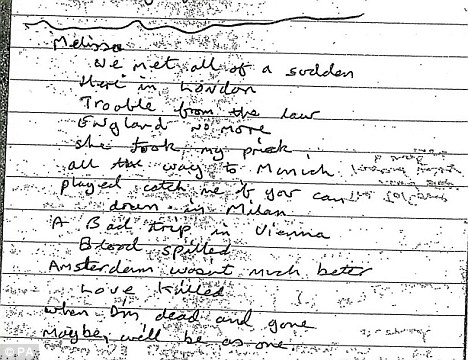 Melissa
We met all of a sudden
Heat in London
Trouble from the law
England no more
she took my prick
all the way to Munich
played catch me if you can
down in Milan
A Bad trip in Vienna
Blood spilled
Amsterdam wasnt much better
Love killed
when Im dead and gone
Maybe, will be as one
© PA